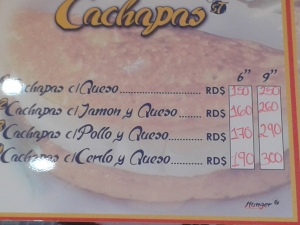 Cachapas
6" 9"
Cachapas c/Queso RD$ 150 250
Cachapas c/Jamon y Queso RD$ 160 260
Cachapas c/Pollo y Queso RD$ 170 290
Cachapas c/Cerdo y Queso RD$ 190 300